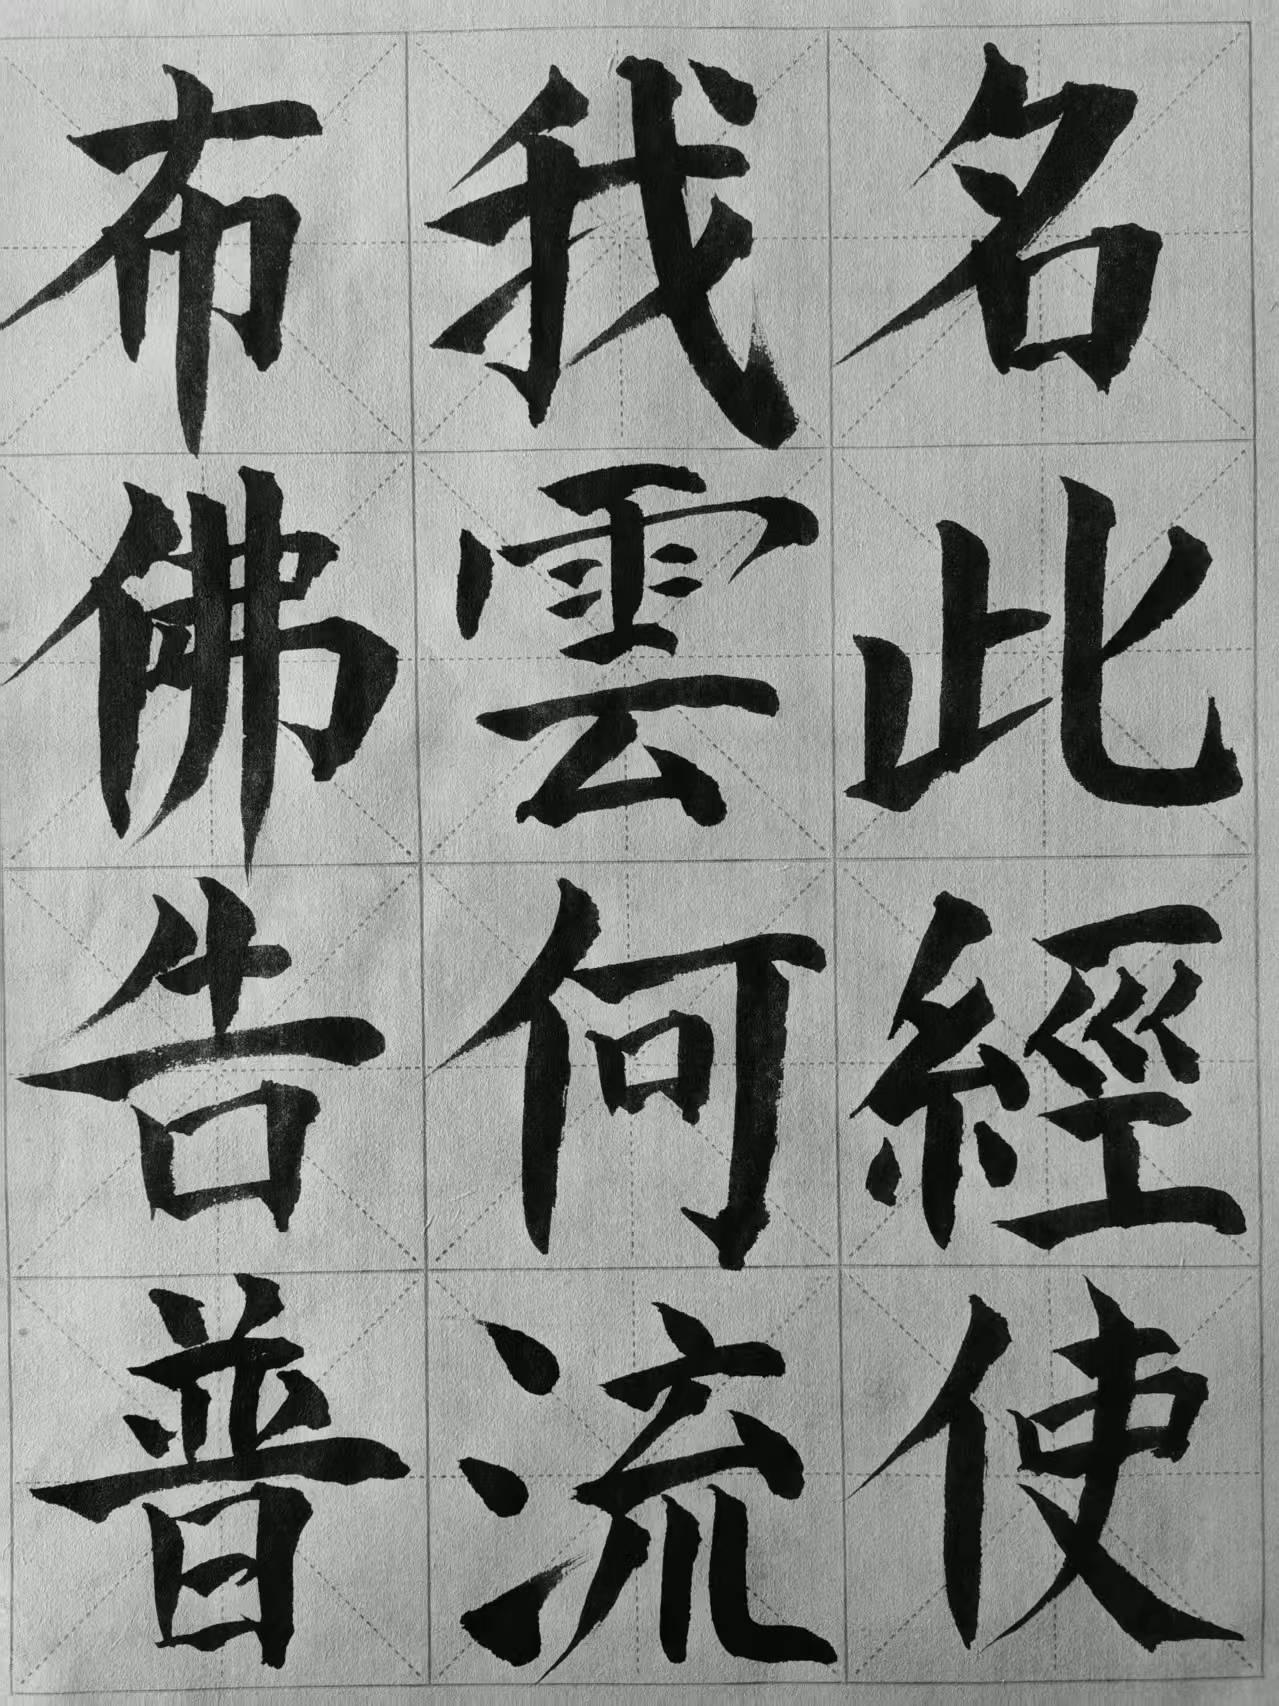 名此經使
我雲何流
布佛告普